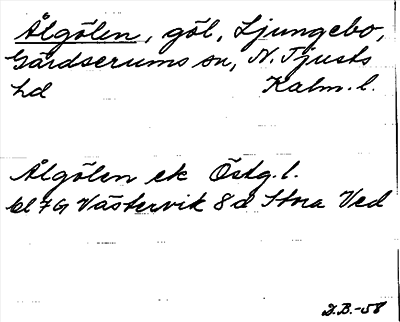 Ålgölen, göl, Ljungebo,
Gärdserums sn, N. Tjusts
hd Kalm. l.
Ålgölen ek Östg. l.
bl 7G Västervik 8 a Stora Ved
D.B.-58